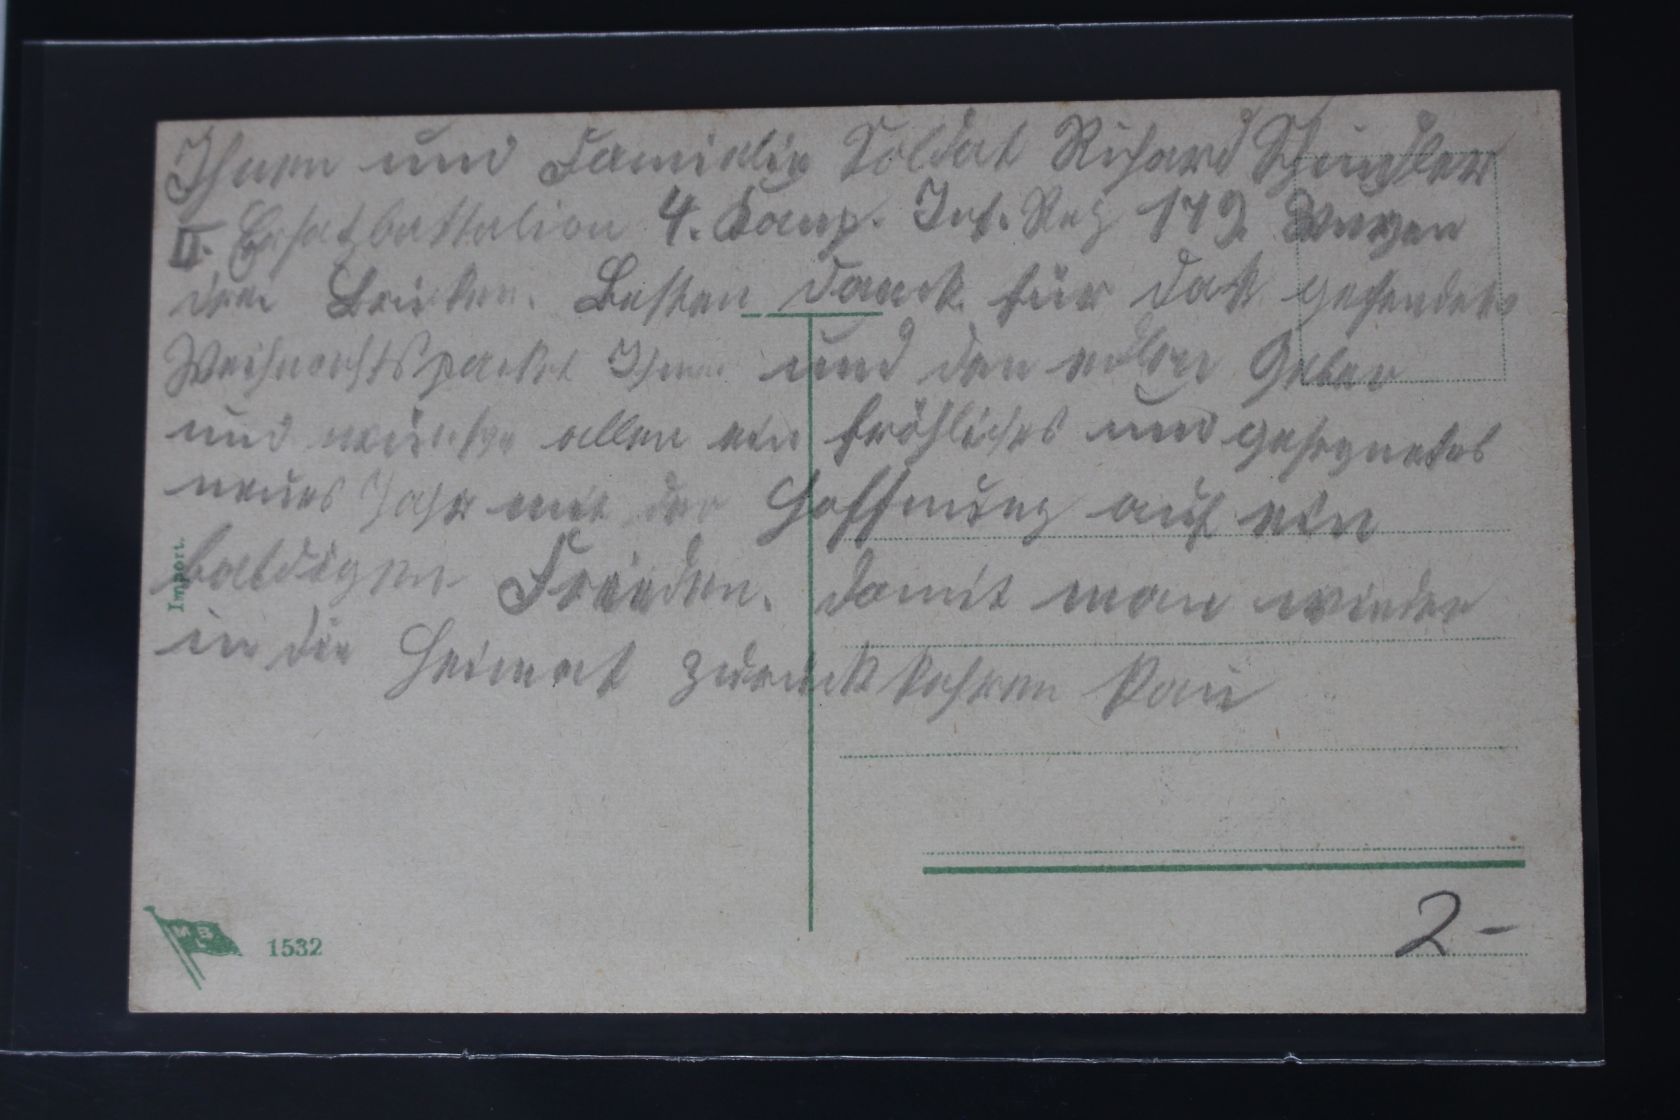 Ihnen und Familie Soldat Richard Schindler
II. Ersatzbattalion 4. Komp. Inf. Reg 179. Wurzen
drei Brücken. Besten Dank für das gesendete
Weihnachtspacket Ihnen und den edlen Geber
und wünsche allen ein fröhliches und gesegnetes
neues Jahr mit der Hoffnung auf ein
baldigen Frieden. damit man wieder
in die Heimat zurückkehren kan
Import.
M B L
1532
2-